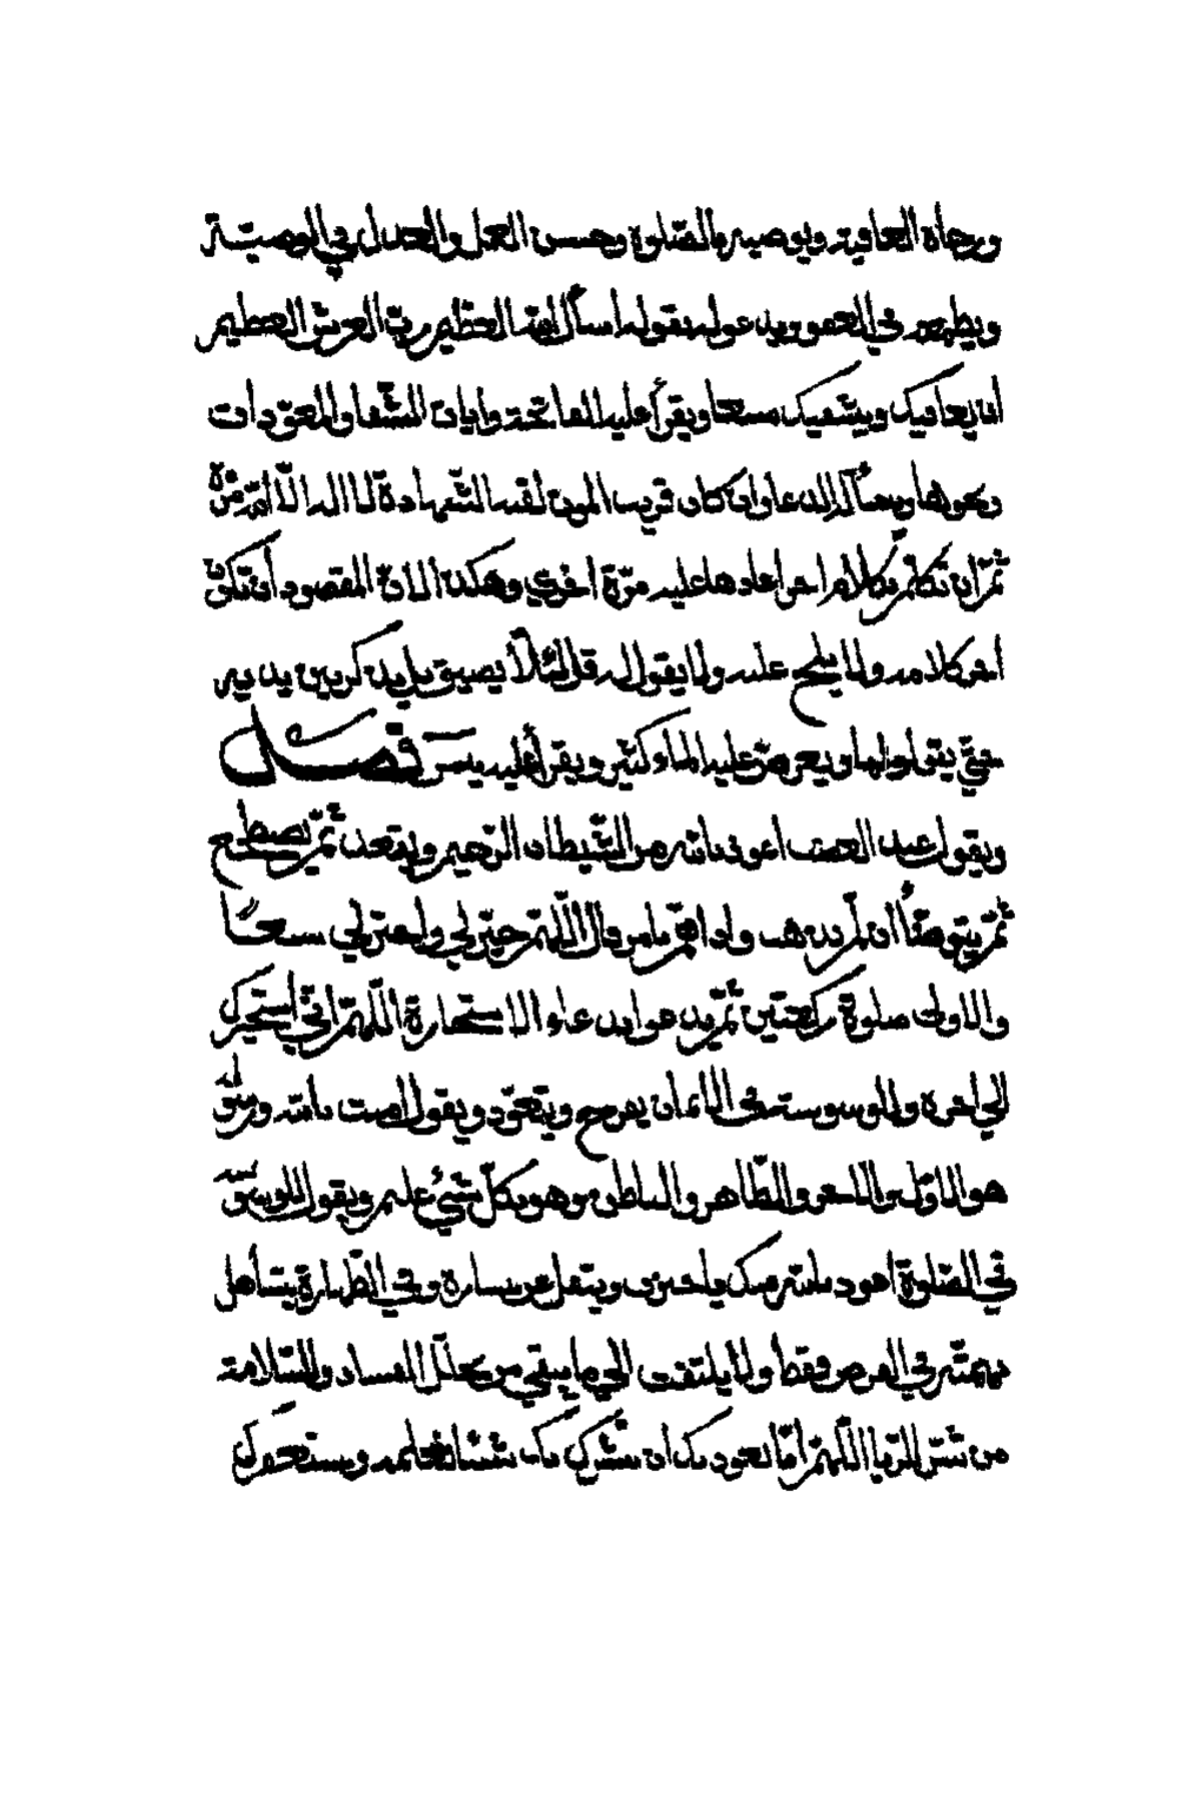 ورجاه العافية ويوصيه بالصّلوة وحسن العمل والعدل في الوصيّة
ويطمعه في العفو ويدعو له بقوله اسأل الله العظيم ربّ العرش العظيم
ان يعافيك ويشفيك سبعا ويقرأ عليه الفاتحة وايات الشّفا والمعوّذات
ويسأله الدعا وان كان قريب الموت لقنه الشّهادة لا اله الّا الله مرّة
ثمّ ان تكلّم بكلام اخر اعادها عليه مرّة اخرى وهكذا لانّ المقصود أن تكون
اخر كلامه ولا يلحّ عليه ولا يقول له قل لئلّا يضيق بل يذكر بين يديه
حتّي يقولها ويعرض عليه الماء كثير ويقرأ عليه يس فصل
ويقول عند الغضب اعوذ بالله من الشّيطان الرّجيم ويقعد ثمّ يضطجع
ثمّ يتوضّأ ان لم يذهب واذا همّ بامر قال اللّهمّ خير لي واختر لي سبعًا
والاولى صلوة ركعتين ثمّ يدعو بدعاء الاستخارة اللّهمّ انّي استخيرك
الي اخره وللوسوسة في الايمان يعرض ويتعوّذ ويقول امنت بالله ورسله
هو الاوّل والاخر والظّاهر والباطن وهو بكلّ شيء عليم ويقول للوسوسة
في الصّلوة اعوذ بالله منك يا خنزب ويتفل عن يساره وفي الطّهارة يتساهل
فقط ولا يلتفت الي ما يبقي من تخلّل الفساد والسّلامة
من شرّ الرّيا اللّهمّ انّا نعوذ بك ان نشرك بك شيئا نعلمه ونستغفرك